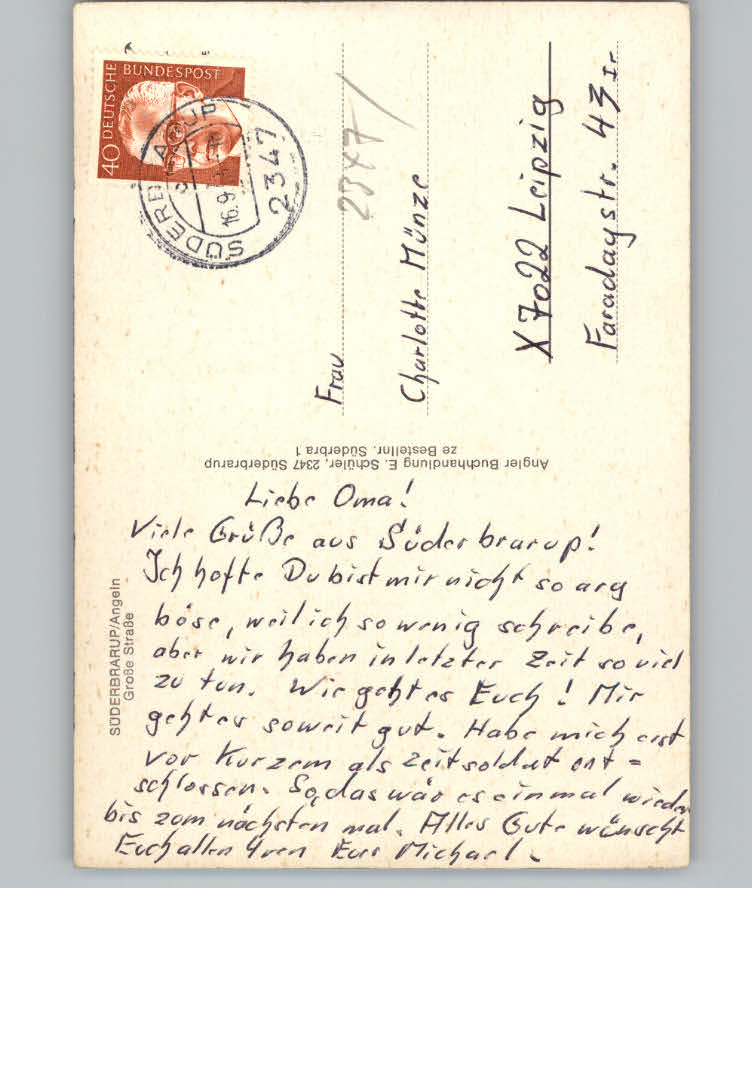 DEUTSCHE BUNDESPOST
40
SÜDERBRARUP
2347
16.9
2347
Frau
Charlotte Münze
X7022 Leipzig
Faradaystr. 43 Ir
Angler Buchhandlung E. Schüler, 2347 Süderbrarup
ze Bestellnr. Süderbra 1
SÜDERBRARUP/Angeln
Große Straße
Liebe Oma!
Viele Grüße aus Süderbrarup!
Ich hofte Du bist mir nicht so arg
böse, weil ich so wenig schreibe,
aber wir haben in letzter Zeit so viel
zu tun. Wie geht es Euch! Mir
geht es soweit gut. Habe mich erst
vor Kurzem als Zeitsoldat ent=
schlossen. So, das wär es einmal wieder
bis zum nächsten mal. Alles Gute wünscht
Euch allen Euer Michael.